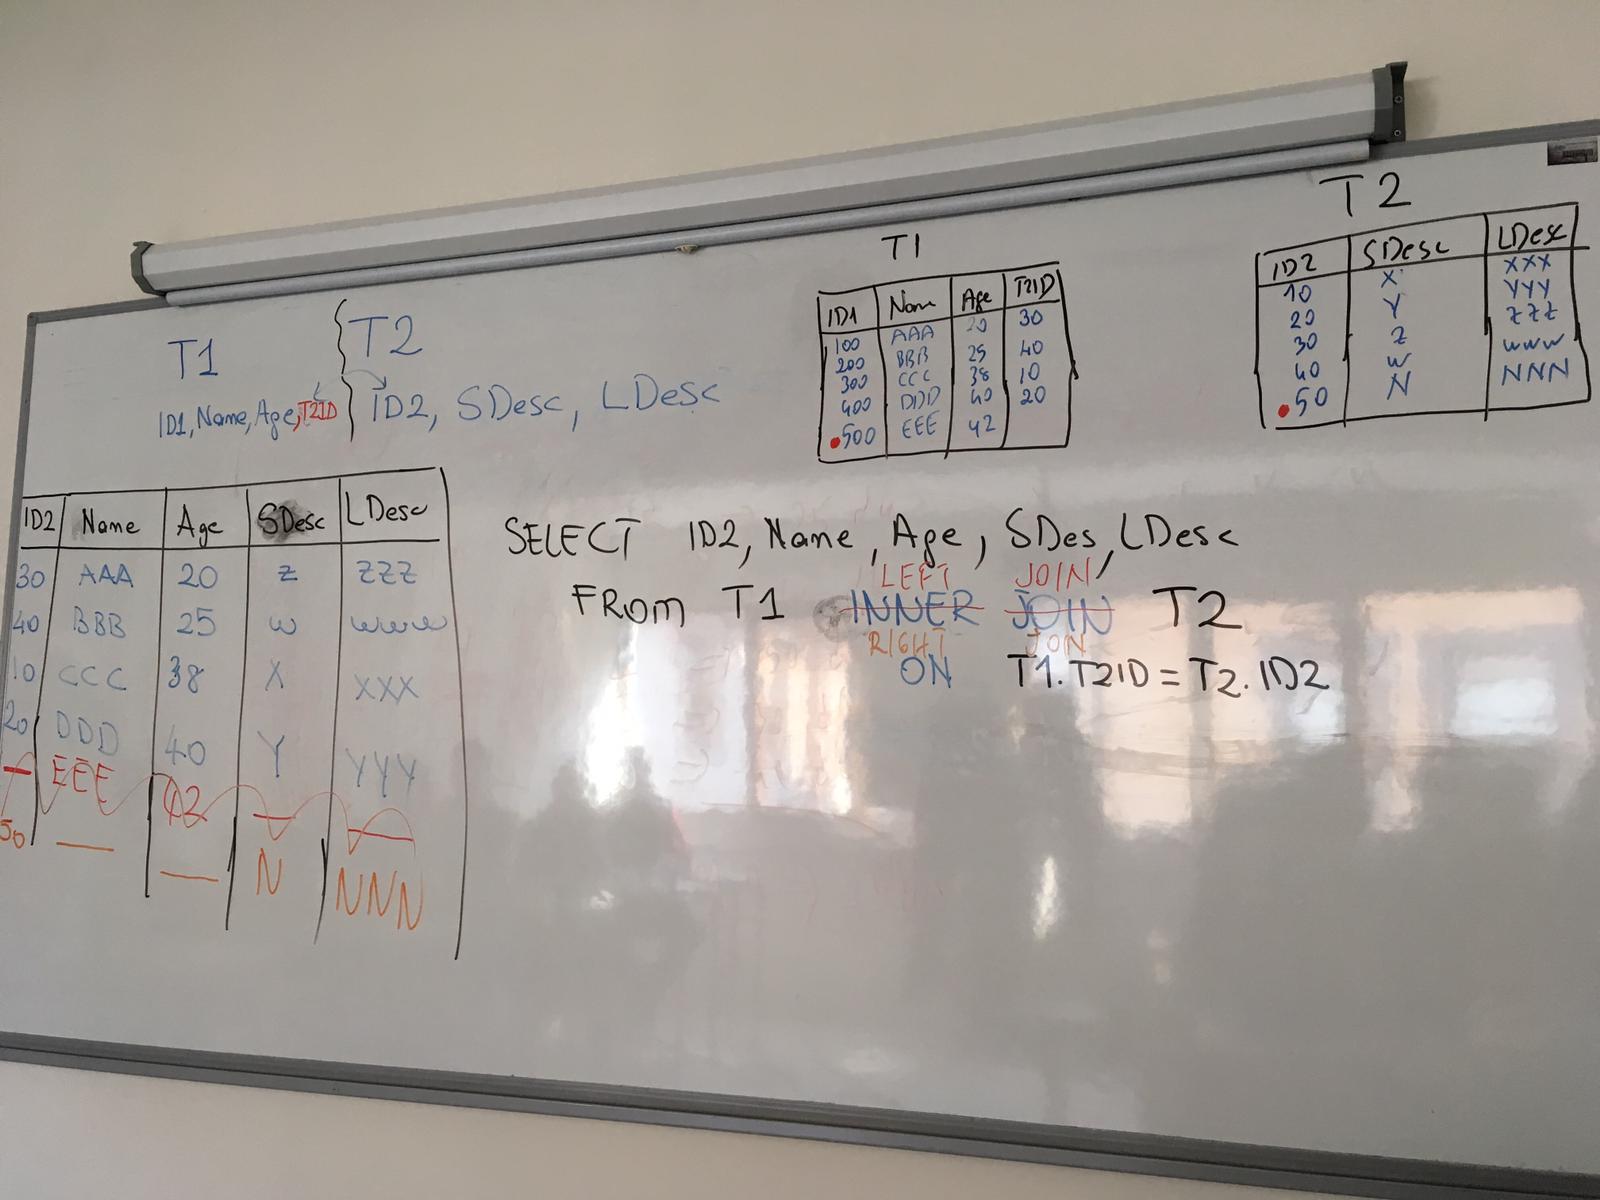 T1
T2
ID1, Name, Age, T2ID
ID2, SDesc, LDesc
T1
ID1 Name Age T2ID
100 AAA 20 30
200 BBB 25 40
300 CCC 38 10
400 DDD 40 20
500 EEE 42
T2
ID2 SDesc LDesc
10 X XXX
20 Y YYY
30 Z ZZZ
40 W WWW
50 N NNN
ID2 Name Age SDesc LDesc
30 AAA 20 Z ZZZ
40 BBB 25 W WWW
10 CCC 38 X XXX
20 DDD 40 Y YYY
— EEE 42 — —
50 — — N NNN
SELECT ID2, Name, Age, SDes, LDesc
LEFT JOIN
FROM T1 INNER JOIN T2
RIGHT JOIN
ON T1.T2ID = T2.ID2